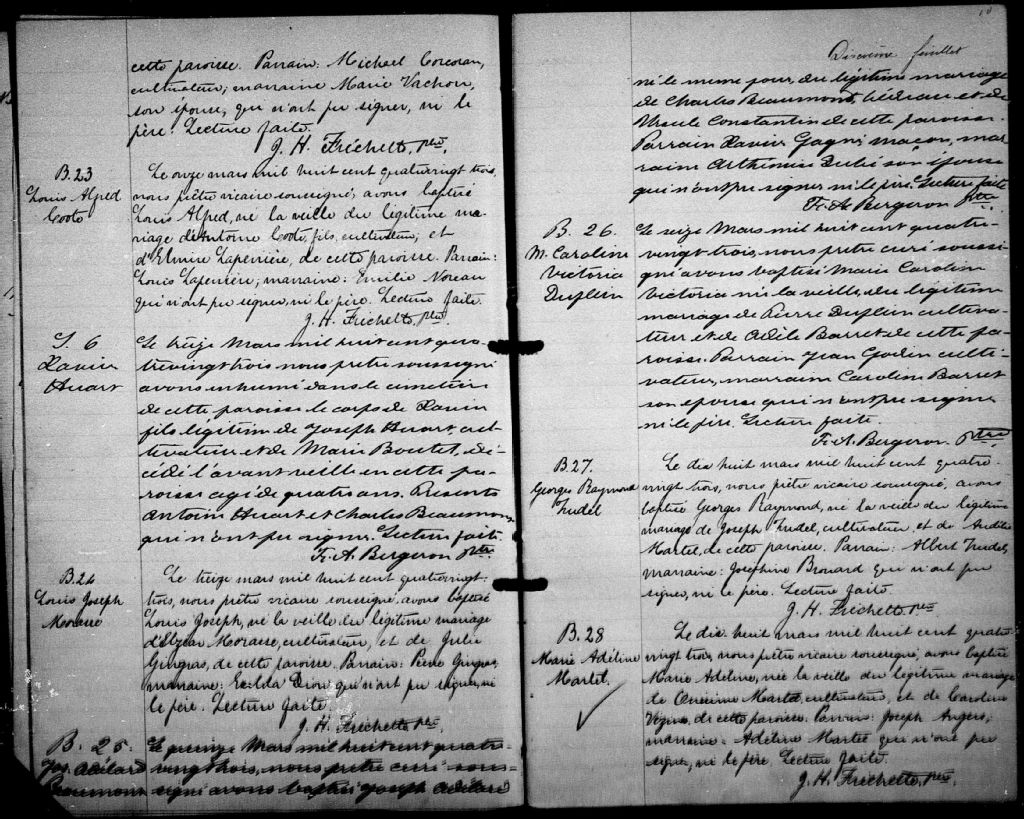 cette paroisse. Parrain: Michael Corcoran,
cultivateur; marraine Marie Vachon,
son épouse, qui n'ont pu signer, ni le
père. Lecture faite.
J. H. Fréchette, ptre
B. 23
Louis Alfred
Coote
Le onze mars mil huit cent quatrevingt trois,
nous prêtre vicaire soussigné, avons baptisé
Louis Alfred, né la veille du légitime ma-
riage de Antoine Coote, fils, cultivateur, et
d'Elmire Laperrière, de cette paroisse. Parrain:
Louis Laperrière; marraine: Emilie Noreau
qui n'ont pu signer, ni le père. Lecture faite.
J. H. Fréchette, ptre
S. 6
Xavier
Huart
Le treize Mars mil huit cent qua-
trevingt trois nous prêtre soussigné
avons inhumé dans le cimetière
de cette paroisse le corps de Xavier
fils légitime de Joseph Huart cul-
tivateur et de Marie Boutet, dé-
cédé l'avant veille en cette pa-
roisse agé de quatre ans. Présents
Antoine Huart et Charles Beaumont
qui n'ont pu signer. Lecture faite.
Fr. A. Bergeron Ptre
B. 24
Louis Joseph
Morasse
Le treize mars mil huit cent quatrevingt-
trois, nous prêtre vicaire soussigné, avons baptisé
Louis Joseph, né la veille du légitime mariage
d'Elzéar Morasse, cultivateur, et de Julie
Gingras, de cette paroisse. Parrain: Pierre Gingras,
marraine: Dion, qui n'ont pu signer, ni
le père. Lecture faite.
J. H. Fréchette ptre
B. 25.
Jos. Adélard
Beaumont
Le quinze Mars mil huit cent quatre-
vingt trois, nous prêtre curé sous-
signé avons baptisé Joseph Adélard
10
Dixième feuillet
né le meme jour, du légitime mariage
de Charles Beaumont, bédeau et de
Ursule Constantin de cette paroisse.
Parrain Xavier Gagné maçon, mar-
raine Arthémise Dubé son épouse
qui n'ont pu signer ni le père. Lecture faite
Fr. A. Bergeron Ptre
B. 26.
M. Caroline
Victoria
Duplein
Le seize Mars mil huit cent quatre-
vingt trois, nous prêtre curé soussi-
gné avons baptisé Marie Caroline
Victoria née la veille, du légitime
mariage de Pierre Duplein cultiva-
teur et de Adèle Barret de cette pa-
roisse. Parrain Jean Godin culti-
vateur, marraine Caroline Barret
son épouse qui n'ont pu signer
ni le père. Lecture faite.
Fr. A. Bergeron Ptre
B. 27.
Georges Raymond
Trudel
Le dix huit mars mil huit cent quatre-
vingt trois, nous prêtre vicaire soussigné, avons
baptisé Georges Raymond, né la veille du légitime
mariage de Joseph Trudel, cultivateur, et de Audélie
Martel, de cette paroisse. Parrain: Albert Trudel,
marraine: Joséphine Brouard qui n'ont pu
signer, ni le père. Lecture faite.
J. H. Fréchette, ptre
B. 28
Marie Adéline
Martel.
Le dix huit mars mil huit cent quatre
vingt trois, nous prêtre vicaire soussigné, avons baptisé
Marie Adéline, née la veille du légitime mariage
de Onésime Martel, cultivateur, et de Caroline
Vézina, de cette paroisse. Parrain: Joseph Angers,
marraine: Adéline Martel qui n'ont pu
signer, ni le père. Lecture faite.
J. H. Fréchette, ptre